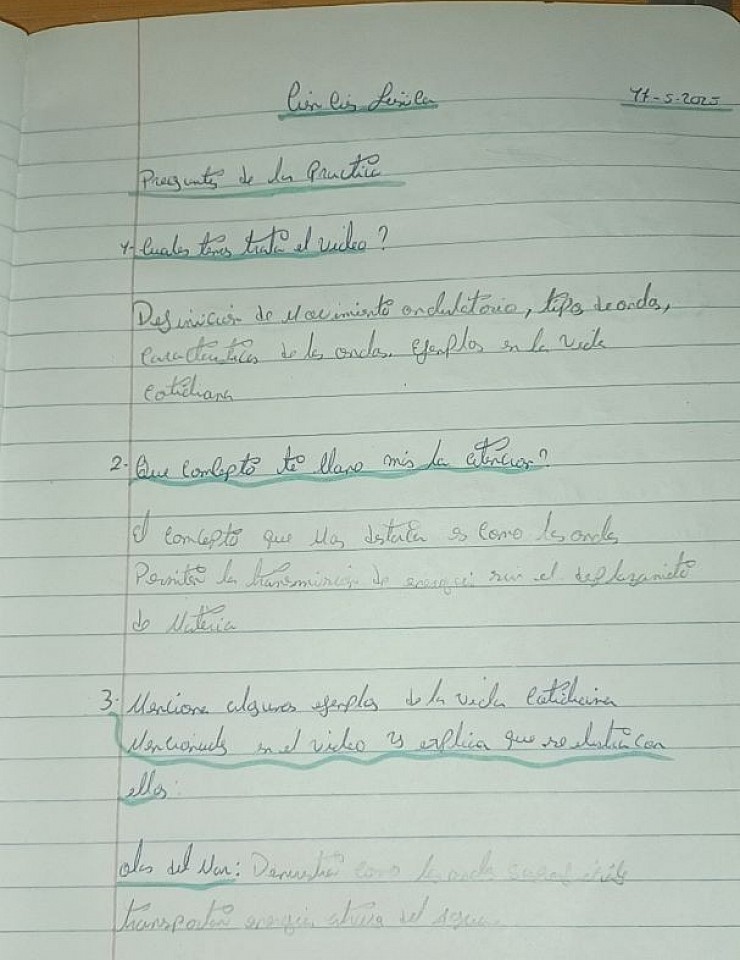 Ciencias Física 17-5-2025
Preguntas de la Practica
1- Cuales temas trata el video?
Definición de Movimiento ondulatorio, tipos de ondas,
Caracteristicas de las ondas. ejemplos en la vida
Cotidiana
2- Que Concepto te llamo más la atencion?
El concepto que Mas destaca es Como las ondas
Permiten la transmision de energia sin el desplazamiento
de Materia
3- Mencione algunos ejemplos de la vida Cotidiana
Mencionados en el video y explica que se destia con
ellos:
olas del Mar: Demuestra como las ondas
transportan energia atraves del agua